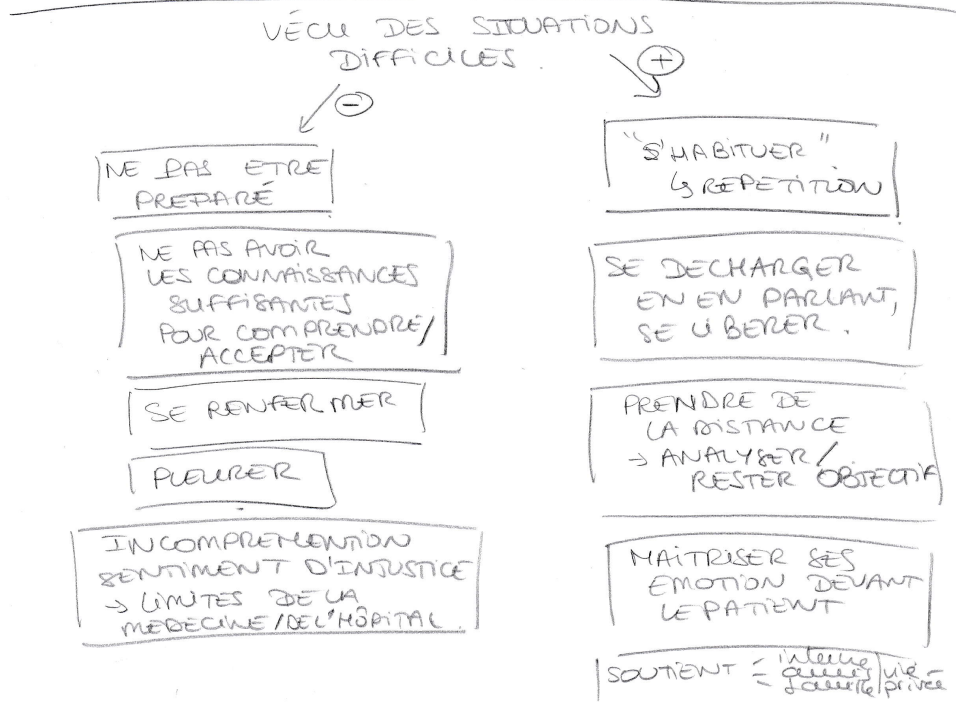 VÉCU DES SITUATIONS
DIFFICILES.
⊖
⊕
NE PAS ETRE
PREPARÉ
NE PAS AVOIR
LES CONNAISSANCES
SUFFISANTES
POUR COMPRENDRE/
ACCEPTER
SE RENFERMER
PLEURER
INCOMPREHENTION
SENTIMENT D'INJUSTICE
→ LIMITES DE LA
MEDECINE/DE L'HÔPITAL.
"S'HABITUER"
↳ REPETITION
SE DECHARGER
EN EN PARLANT,
SE LIBERER.
PRENDRE DE
LA DISTANCE
→ ANALYSER/
RESTER OBJECTIF
MAITRISER SES
EMOTION DEVANT
LE PATIENT
SOUTIENT = interne
amis
famille
vie
privée